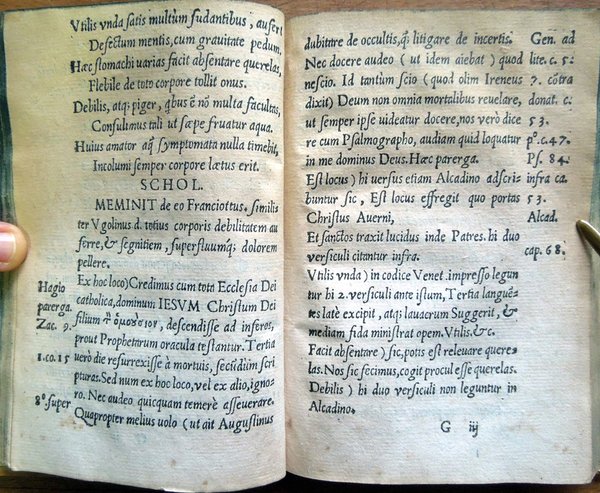 Vtilis vnda satis multùm sudantibus, aufert
Defectum mentis, cum grauitate pedum.
Hæc stomachi varias facit absentare querelas,
Flebile de toto corpore tollit onus.
Debilis, atq; piger, qbus è nō multa facultas,
Consulimus tali ut sæpe fruatur aqua.
Huius amator aq̄ symptomata nulla timebit,
Incolumi semper corpore lætus erit.
SCHOL.
MEMINIT de eo Franciottus. similis
ter Vgolinus d. totius corporis debilitatem au
ferre, & segnitiem, superfluumq; dolorem
pellere.
Ex hoc loco) Credimus cum tota Ecclesia Dei
catholica, dominum IESVM Christum Dei
filium ὁμούσιον, descendisse ad inferos,
prout Prophetarum oracula testantur. Tertia
uerò die resurrexisse à mortuis, secūdùm scri
pturas. Sed num ex hoc loco, vel ex alio, igno,
ro. Nec audeo quicquam temerè asseuerare.
Quapropter melius uolo (ut ait Augustinus
Hagio
parerga.
Zac. 9.
1.co.15
8°.super
dubitare de occultis, q̄; litigare de incertis.
Nec docere audeo (ut idem aiebat) quod
nescio. Id tantùm scio (quod olim Ireneus
dixit) Deum non omnia mortalibus reuelare,
ut semper ipse uideatur docere, nos verò dice
re cum Psalmographo, audiam quid loquatur
in me dominus Deus. Hæc parerga.
Est locus) hi uersus etiam Alcadino adscris
buntur sic, Est locus effregit quo portas
Christus Auerni,
Et sanctos traxit lucidus inde Patres. hi duo
versiculi citantur infra.
Vtilis vnda) in codice Venet. impresso legun
tur hi 2. versiculi ante istum, Tertia languē-
tes latè excipit, atq; lauacrum Suggerit, &
mediam fida ministrat opem. Vtilis. &c.
Facit absentare) sic, potis est releuare quere
las. Nos sic fecimus, cogit procul esse querelas.
Debilis) hi duo versiculi non leguntur in
Alcadino.
G iij
Gen. ad
lite. c. 5.
7. cōtra
donat. c.
53.
p°.c.47.
Ps. 84.
infra ca.
53.
Alcad.
cap. 68.